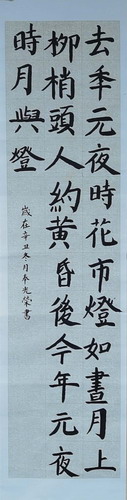 去年元夜時花市燈如晝月上
柳梢頭人約黃昏後今年元夜
時月與燈
歲在辛丑冬月奉先榮書